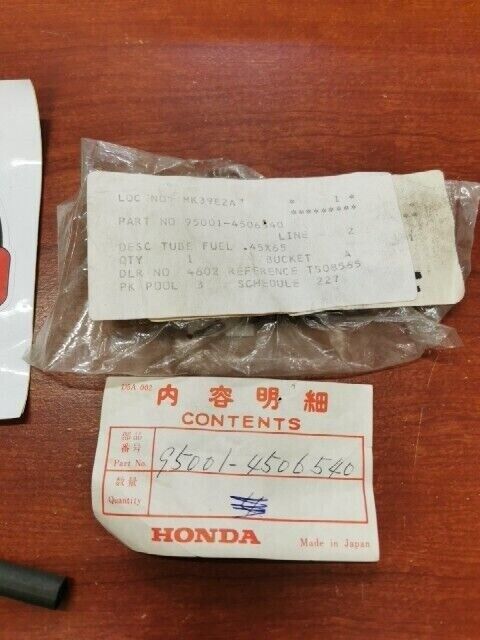 LOC NO? MK39E2A7 * 1 *
*********
PART NO 95001-4506540
LINE 2
DESC TUBE FUEL .45X65
QTY 1 BUCKET A
DLR NO 4602 REFERENCE T508565
PK POOL 3 SCHEDULE 227
D5A 002
内容明細
CONTENTS
部品
番号
Part No. 95001-4506540
数量
Quantity
HONDA
Made in Japan